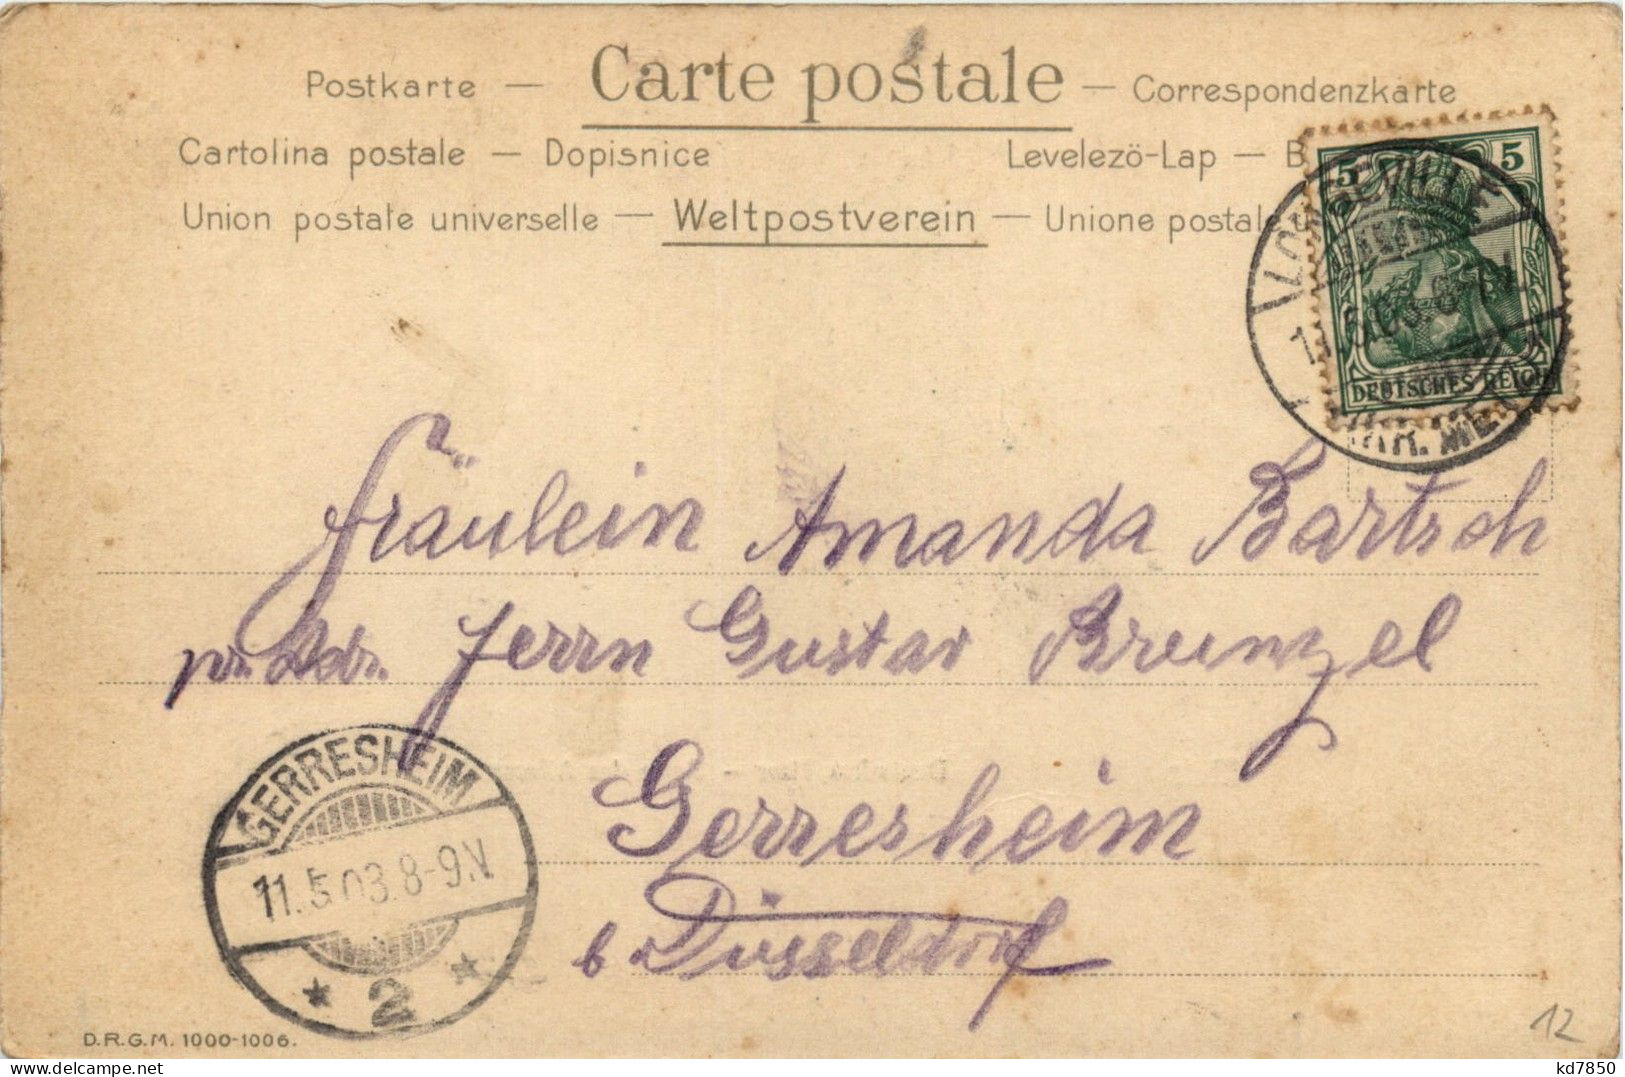 Postkarte — Carte postale — Correspondenzkarte
Cartolina postale — Dopisnice Levelezö-Lap —
Union postale universelle — Weltpostverein — Unione postale
5 5
DEUTSCHES REICH
LONGEVILLE
Fräulein Amanda Bartsch
pr. Adr. Herrn Gustav Brunzel
Gerresheim
b. Düsseldorf
GERRESHEIM
11.5.03.8-9.N
* 2 *
D.R.G.M. 1000-1006.
12
kd7850